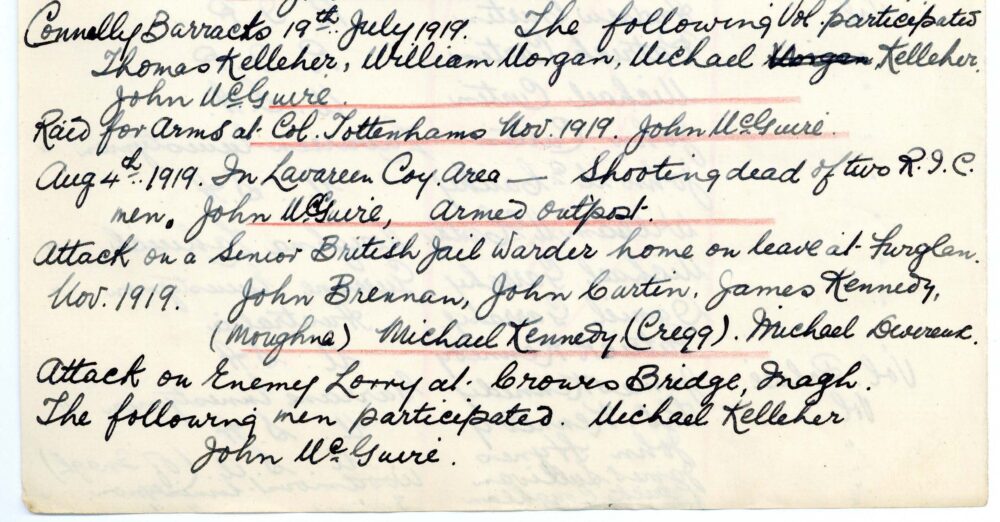 Connelly Barracks 19th July 1919. The following Vol. participated
Thomas Kelleher, William Morgan, Michael Morgan Kelleher.
John McGuire.
Raid for Arms at Col. Tottenhams Nov. 1919. John McGuire.
Aug 4th 1919. In Lavareen Coy. Area — Shooting dead of two R.I.C.
men. John McGuire, Armed outpost.
Attack on a Senior British Jail Warder home on leave at Furglan.
Nov. 1919. John Brennan, John Curtin, James Kennedy,
(Moughna) Michael Kennedy (Cregg). Michael Devereux.
Attack on Enemy Lorry at Crowes Bridge, Inagh.
The following men participated. Michael Kelleher
John McGuire.